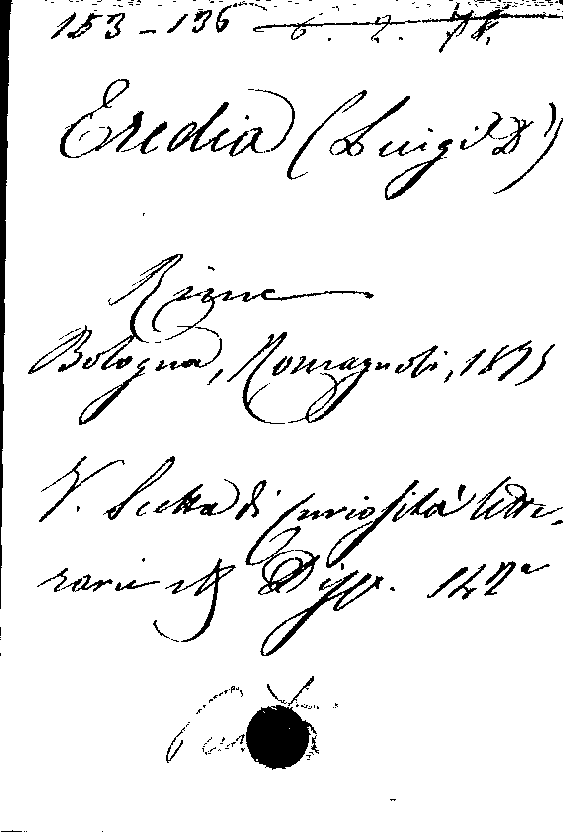 153-136 6. 2. 78.
Eredia (Luigi D')
Rime
Bologna, Romagnoli, 1875
V. Scelta di Curiosità lette-
rarie etc Disp. 142ª